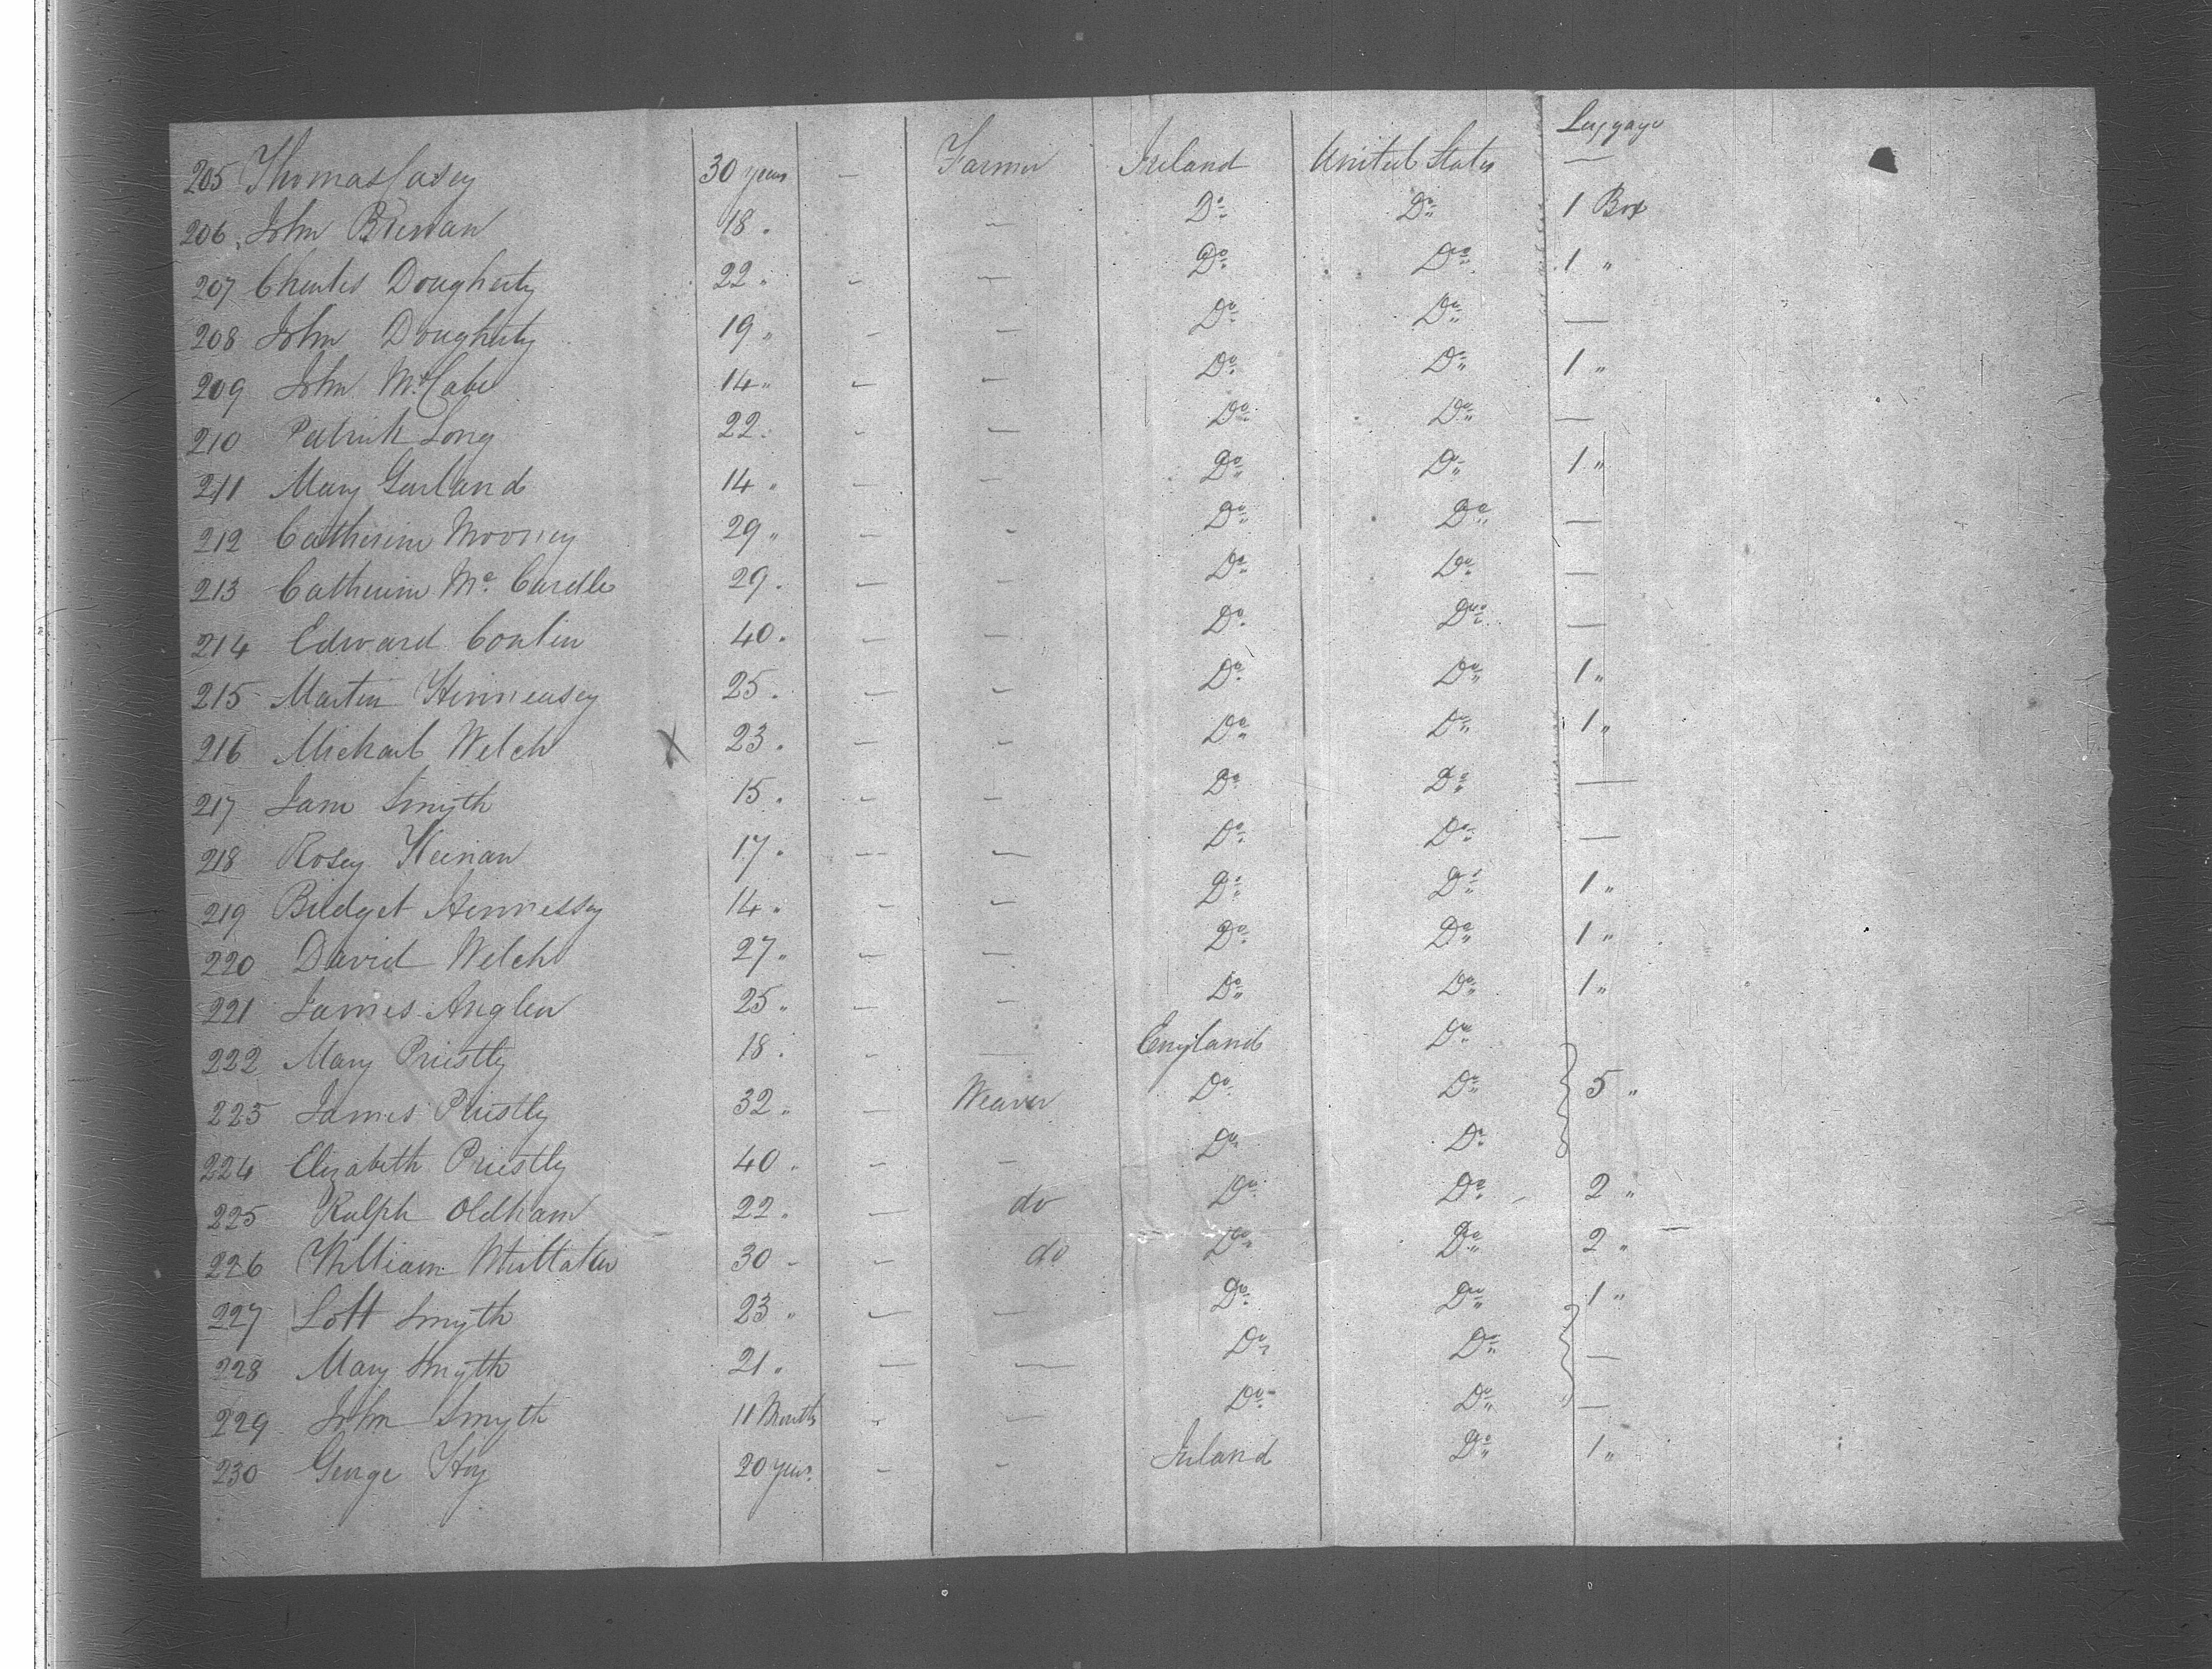 Luggage
205 Thomas Casey 30 years — Farmer Ireland United States —
206 John Brenan 18 " — Do Do 1 Box
207 Charles Dougherty 22 " — — Do Do 1 "
208 John Dougherty 19 " — — Do Do —
209 John McCabe 14 " — — Do Do 1 "
210 Patrick Long 22 " — — Do Do —
211 Mary Garland 14 " — — Do Do 1 "
212 Catherine Mooney 29 " — — Do Do —
213 Catherine Mc Cardle 29 " — — Do Do —
214 Edward Conlin 40 " — — Do Do —
215 Martin Henneasey 25 " — — Do Do 1 "
216 Michael Welch X 23 " — — Do Do 1 "
217 Jane Smyth 15 " — — Do Do —
218 Rosey Keenan 17 " — — Do Do —
219 Bridget Hennessey 14 " — — Do Do 1 "
220 David Welch 27 " — — Do Do 1 "
221 James Anglen 25 " — — Do Do 1 "
222 Mary Priestly 18 " — — England Do
223 James Priestly 32 " — Weaver Do Do 5 "
224 Elizabeth Priestly 40 " — — Do Do
225 Ralph Oldham 22 " — do Do Do 2 "
226 William Whittaker 30 " — do Do Do 2 "
227 Lott Smyth 23 " — — Do Do 1 "
228 Mary Smyth 21 " — — Do Do —
229 John Smyth 11 Months — — Do Do —
230 George 20 years — — Ireland Do 1 "